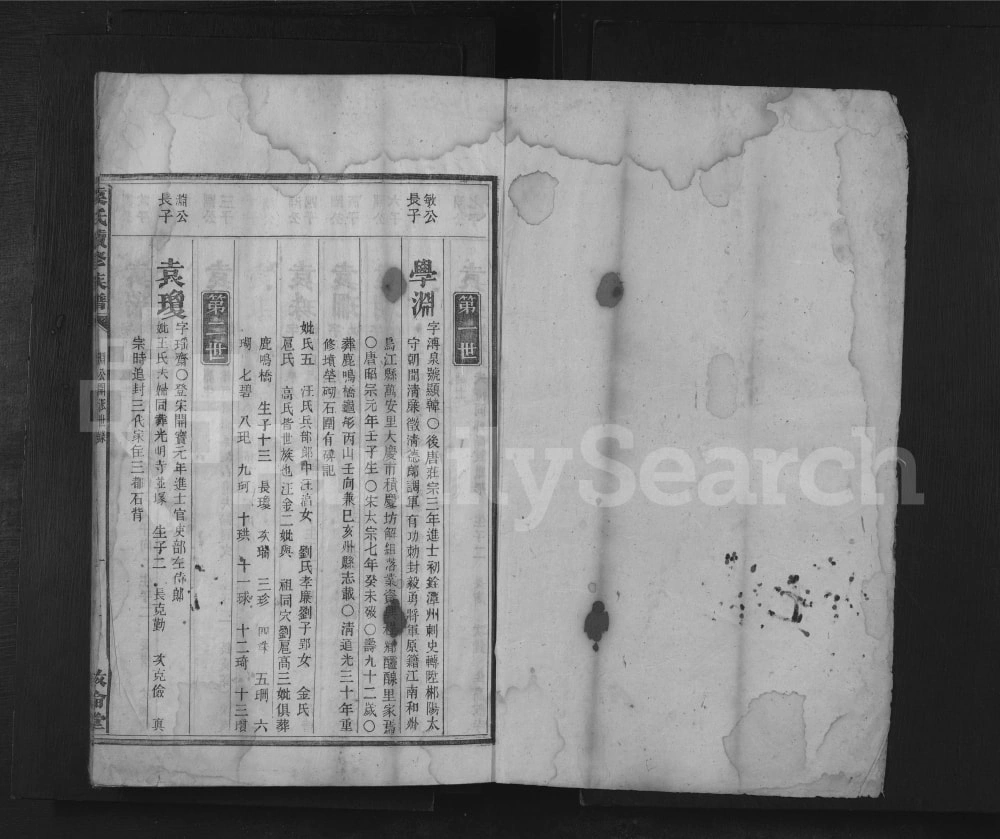 第一世
敏公
長子
學淵
字溥泉號顯韓○後唐莊宗三年進士初銓潭州刺史轉陞郴陽太
守朝聞清廉徵清德郎調軍有功勅封毅勇將軍原籍江南和州
烏江縣萬安里大慶市積慶坊解組落業 醽醁里家焉
○唐昭宗元年壬子生○宋太宗七年癸未歿○壽九十二歲○
葬鹿鳴橋 形丙山壬向兼巳亥州縣志載○清道光三十年重
修墳塋砌石圍有碑記
妣氏五 汪氏兵部郎中汪 女 劉氏孝廉劉子郢女 金氏
扈氏 高氏皆世族也汪金二妣與 祖同穴劉扈高三妣俱葬
鹿鳴橋 生子十三 長瓊 次瑞 三珍 四 五珊 六
瑚 七碧 八玘 九珂 十珙 十一球 十二琦 十三瓚
第二世
淵公
長子
袁瓊
字瑤齋○登宋開寶元年進士官吏部左侍郎
妣王氏夫婦同葬光明寺 塚 生子二 長克勤 次克儉 真
宗時追封三代 三都石背
氏 修族譜
敦倫堂
FamilySearch